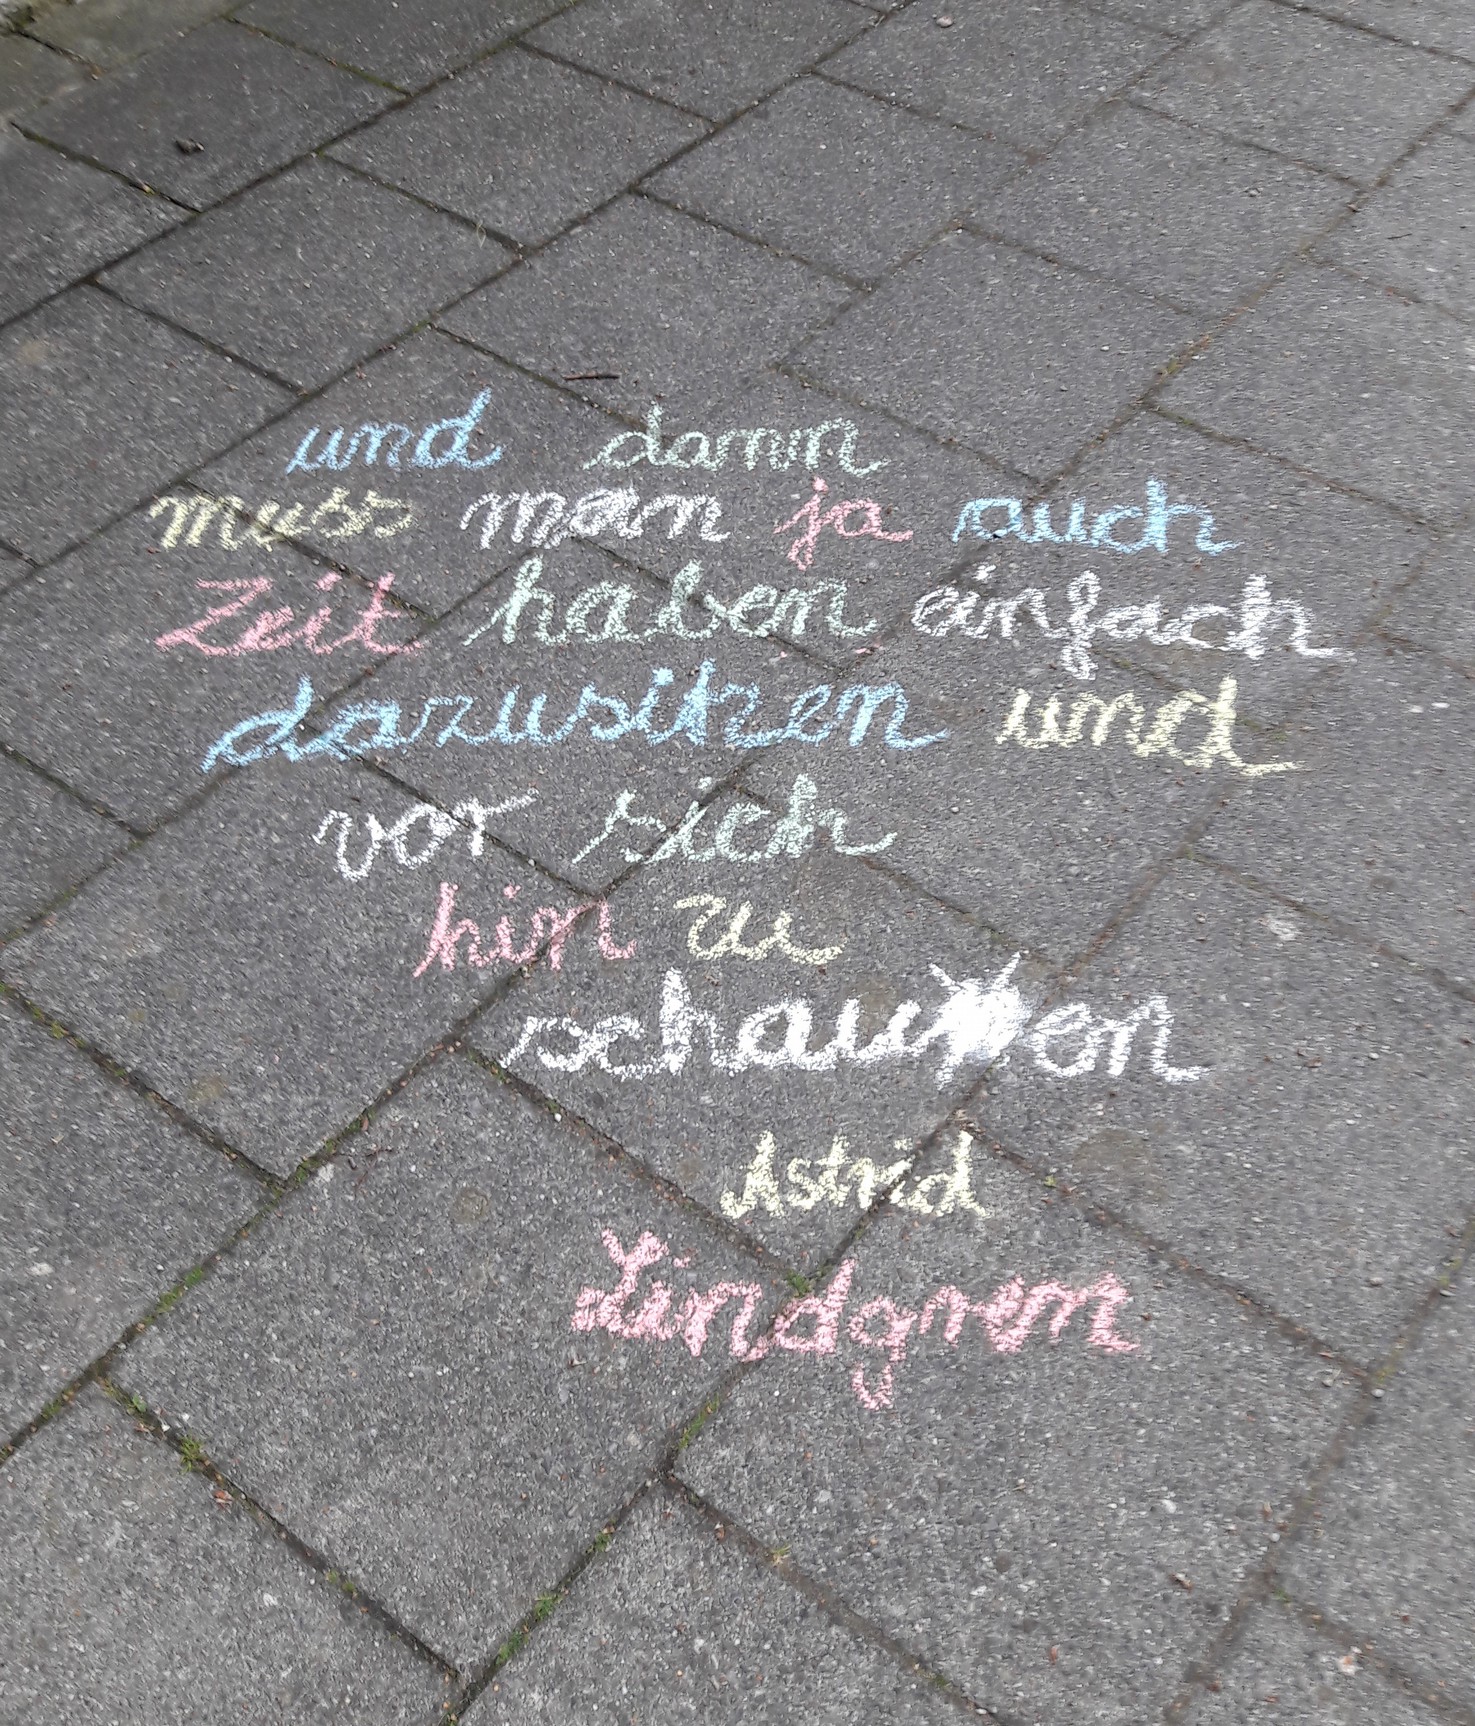 und dann
muss man ja auch
Zeit haben einfach
dazusitzen und
vor sich
hin zu
schauen
Astrid
Lindgren